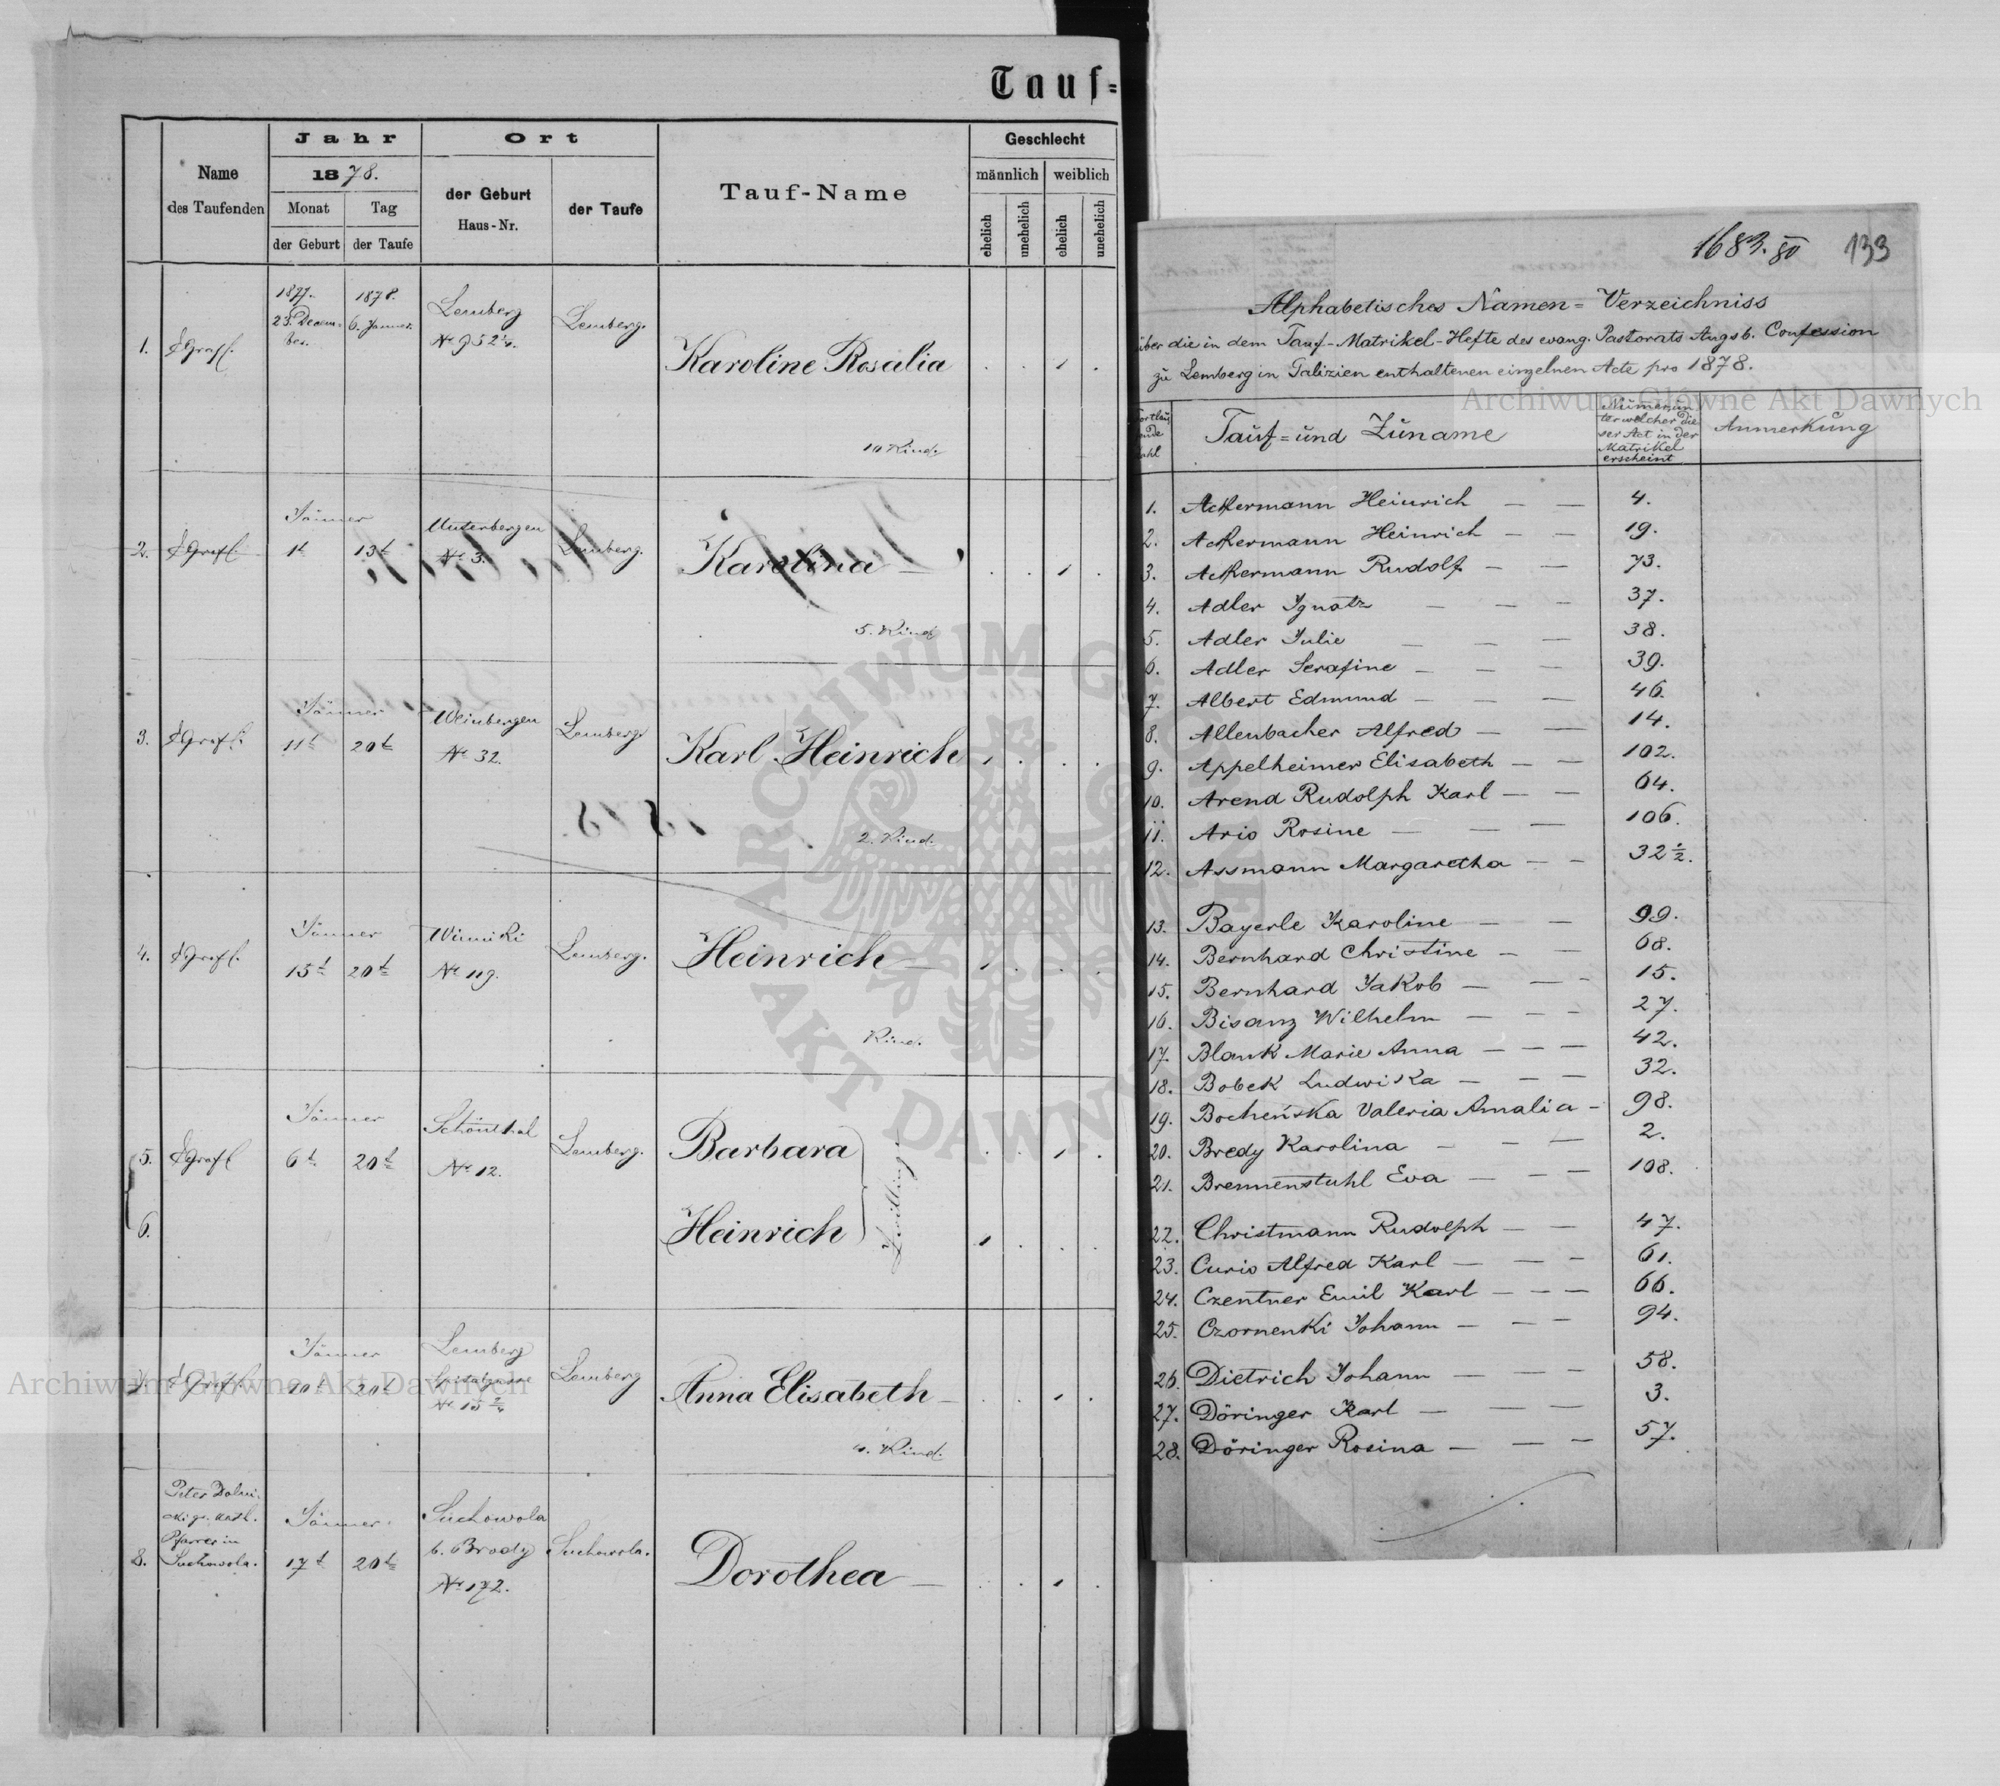 Tauf-
Name
des Taufenden
Jahr
1878.
Monat
der Geburt
Tag
der Taufe
Ort
der Geburt
Haus-Nr.
der Taufe
Tauf-Name
Geschlecht
männlich
weiblich
ehelich
unehelich
ehelich
unehelich
1.
1877.
23. Decem-
ber.
1878.
6. Jänner.
Lemberg
Nr. 952 2/4.
Lemberg.
Karoline Rosalia
10 Kind.
2.
Jänner
1t
13t
Unterbergen
Nr. 3.
Lemberg.
Karolina
5. Kind
3.
Jänner
11t
20t
Weinbergen
Nr. 32.
Lemberg
Karl Heinrich
2. Kind.
4.
Jänner
15t
20t
Winniki
Nr. 119.
Lemberg.
Heinrich
Kind.
5.
Jänner
6t
20t
Schönthal
Nr. 12.
Lemberg.
Barbara
6.
Heinrich
Zwillinge
7.
Jänner
20t
Lemberg
Lemberg
Anna Elisabeth
Kind.
8.
Pfarrer in
Suchowola.
Jänner.
17t
20t
Suchowola
b. Brody
Nr. 172.
Suchowola.
Dorothea
133
Alphabetisches Namen=Verzeichniss
über die in dem Tauf-Matrikel-Hefte des evang. Pastorats Augsb. Confession
zu Lemberg in Galizien enthaltenen einzelnen Acte pro 1878.
Tauf=und Zuname
Numer, un
ter welcher die
ser Act in der
Matrikel
erscheint
Anmerkung
1. Ackermann Heinrich — — 4.
2. Ackermann Heinrich — — 19.
3. Ackermann Rudolf — — 73.
4. Adler Ignatz — — — 37.
5. Adler Julie — — — 38.
6. Adler Serafine — — — 39.
7. Albert Edmund — — — 46.
8. Allenbacher Alfred — — 14.
9. Appelheimer Elisabeth — — 102.
10. Arend Rudolph Karl — — 64.
11. Ario Rosine — — — 106.
12. Assmann Margaretha — — 32 1/2.
13. Bayerle Karoline — — 99.
14. Bernhard Christine — 68.
15. Bernhard Jakob — — - 15.
16. Bisanz Wilhelm — — - 27.
17. Blank Marie Anna — — — 42.
18. Bobek Ludwika — — — 32.
19. Bocheńska Valeria Amalia - 98.
20. Bredy Karolina — — — 2.
21. Brennenstuhl Eva — — — 108.
22. Christmann Rudolph — — 47.
23. Curio Alfred Karl — — - 61.
24. Czentner Emil Karl — — — 66.
25. Czornenki Johann — — — 94.
26. Dietrich Johann — — — 58.
27. Döringer Karl — — — 3.
28. Döringer Rosina — — — 57.
Archiwum Główne Akt Dawnych
Archiwum Główne Akt Dawnych